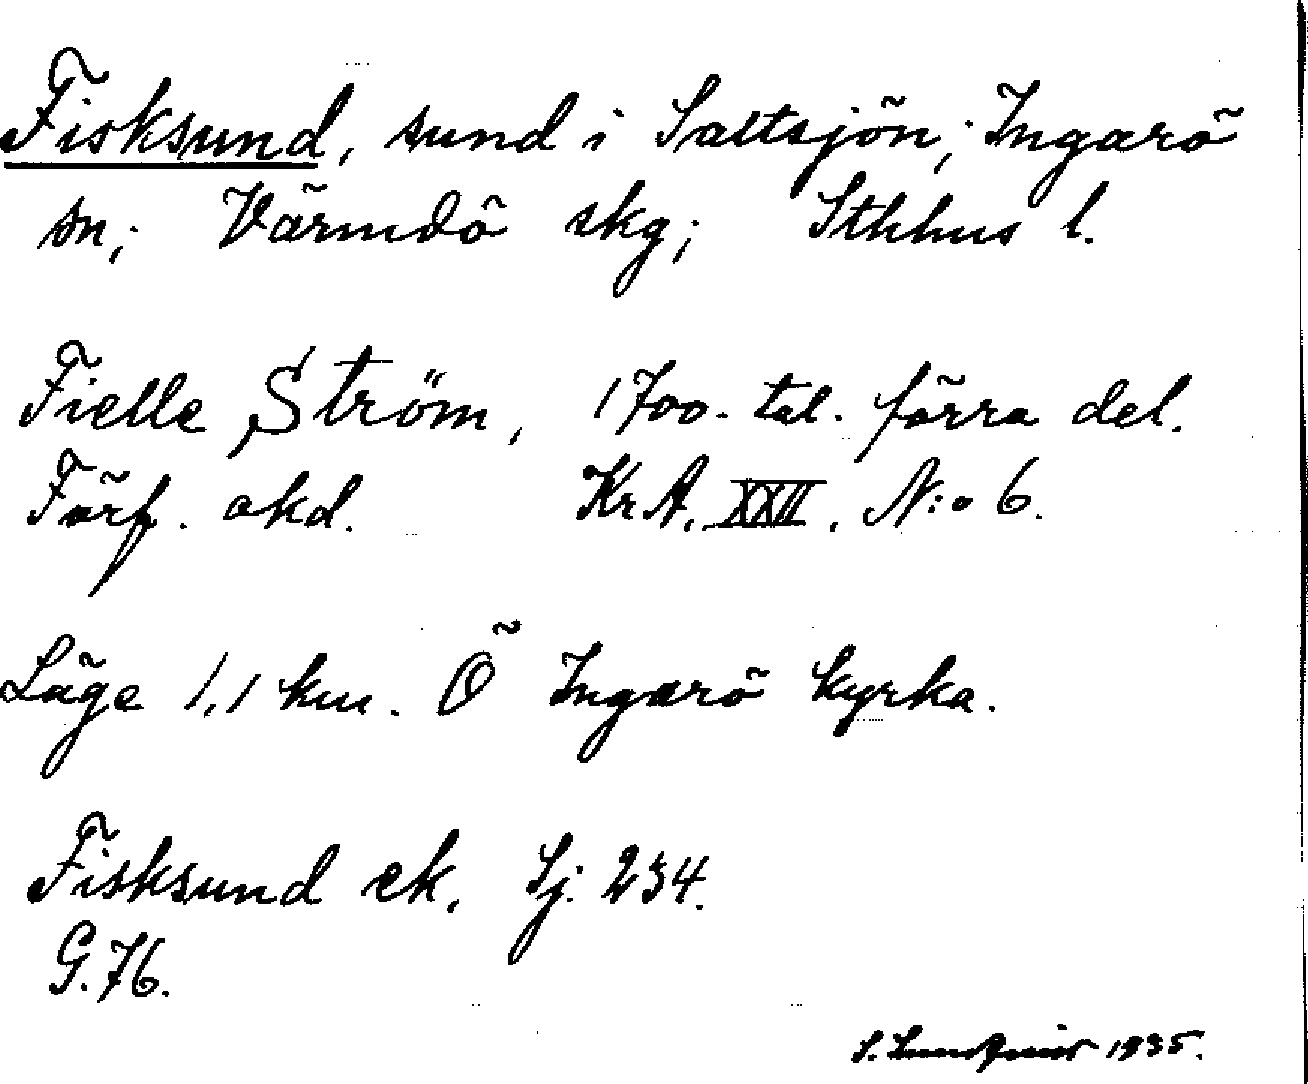 Fisksund, sund i Saltsjön; Ingarö
sn; Värmdö skg; Sthhus l.
Fielle Ström, 1700-tal. förra del.
Förf. okd. Kr A. XXII. N:o 6.
Läge 1,1 km. Ö Ingarö kyrka.
Fisksund ek. Sj. 234.
G. 76.
S. Lundqvist 1935.